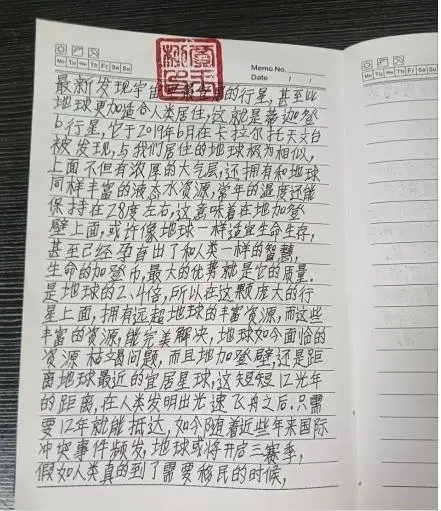 Mo Tu We Th Fr Sa Su
Memo No.
Date / /
Mo Tu We Th Fr Sa Su
最新发现宇宙的行星,甚至比
地球更加适合人类居住,这就是蒂加登
b行星,它于2019年6月在卡拉尔托天文台
被发现,与我们居住的地球极为相似,
上面不但有浓厚的大气层,还拥有和地球
同样丰富的液态水资源,常年的温度还能
保持在28度左右,这意味着在地加登
壁上面,或许像地球一样适宜生命生存,
甚至已经孕育出了和人类一样的智慧,
生命的加登币,最大的优势就是它的质量.
是地球的2.4倍,所以在这颗庞大的行
星上面,拥有远超地球的丰富资源,而这些
丰富的资源,能完美解决,地球如今面临的
资源枯竭问题,而且地加登壁,还是距
离地球最近的宜居星球,这短短12光年
的距离,在人类发明出光速飞舟之后.只需
要12年就能抵达,如今随着近些年来国际
冲突事件频发,地球或将开启三赛季,
假如人类真的到了需要移民的时候,